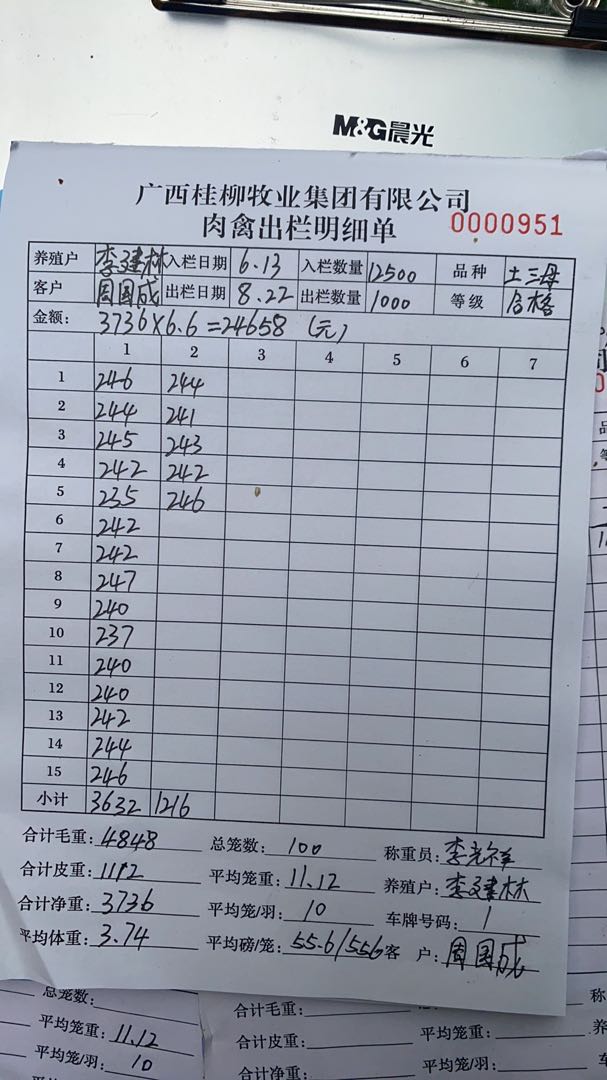 M&G晨光
广西桂柳牧业集团有限公司
肉禽出栏明细单 0000951
养殖户 李建林 入栏日期 6.13 入栏数量 12500 品种 土三母
客户 周国成 出栏日期 8.22 出栏数量 1000 等级 合格
金额: 3736×6.6=24658 (元)
1 2 3 4 5 6 7
1 246 244
2 244 241
3 245 243
4 242 242
5 235 246
6 242
7 242
8 247
9 240
10 237
11 240
12 240
13 242
14 244
15 246
小计 3632 1216
合计毛重: 4848 总笼数: 100 称重员: 李光祥
合计皮重: 1112 平均笼重: 11.12 养殖户: 李建林
合计净重: 3736 平均笼/羽: 10 车牌号码: 1
平均体重: 3.74 平均磅/笼: 55.6/556 客 户: 周国成
总笼数:
平均笼重: 11.12
平均笼/羽: 10
合计毛重: 总笼数: 称
合计皮重: 平均笼重: 养
合计净重: 平均笼/羽: